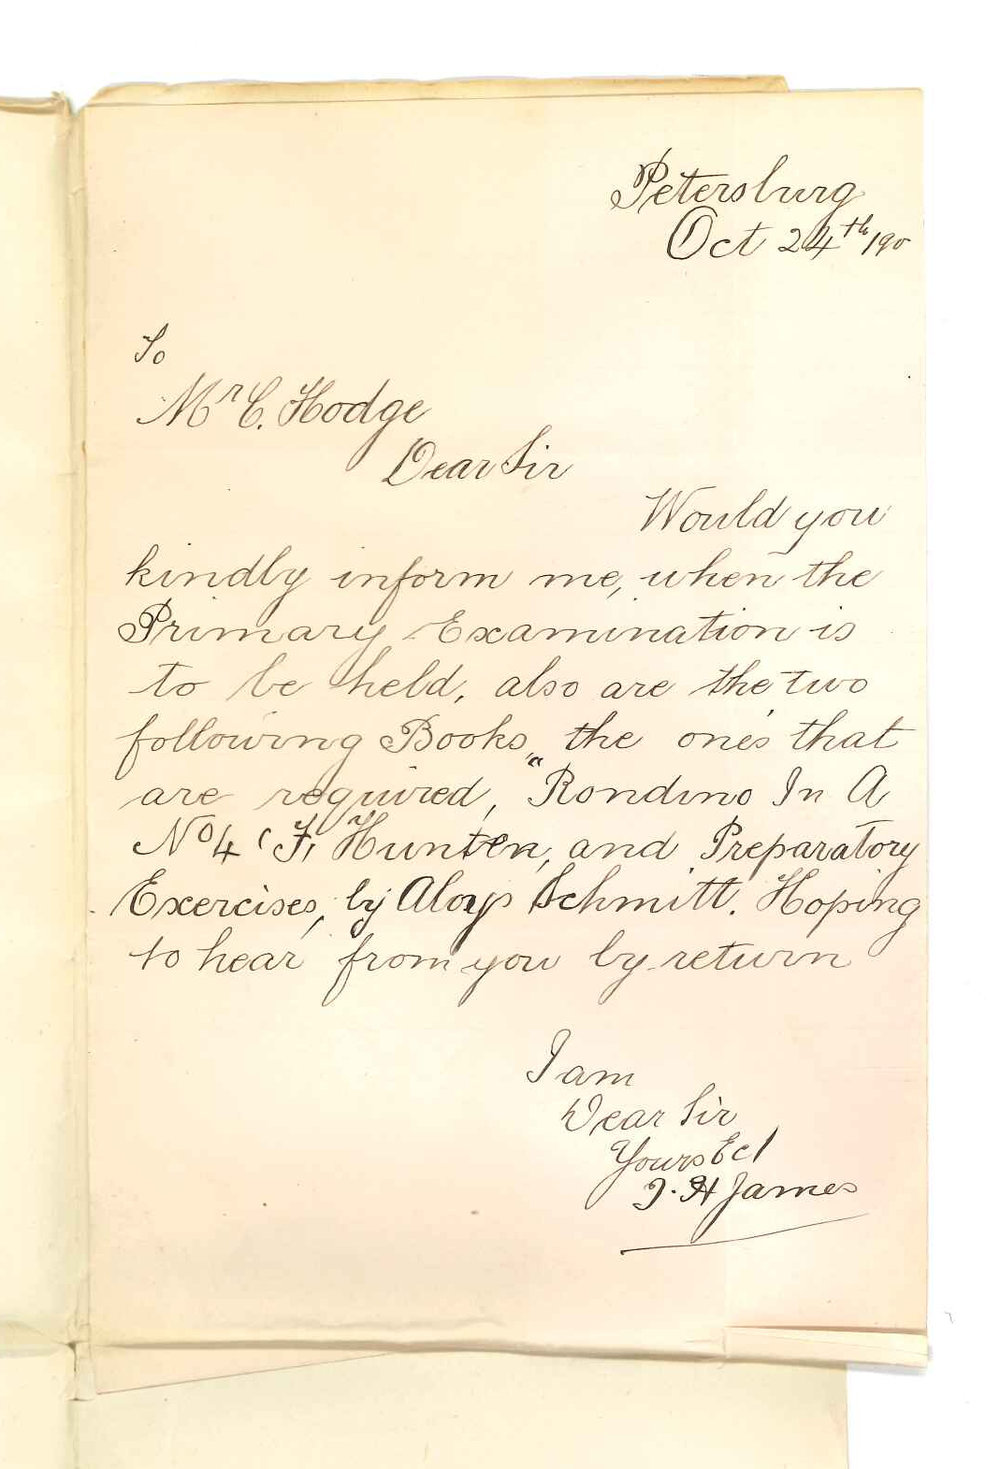 Petersburg
Oct 24th /90
To
Mr C. Hodge
Dear Sir
Would you
kindly inform me, when the
Primary Examination is
to be held, also are the two
following Books, the ones that
are required, "Rondino In A
No 4 (F, Hunten, and Preparatory
Exercises, by Aloys Schmitt. Hoping
to hear from you by return
I am
Dear Sir
Yours Ect
J. H James